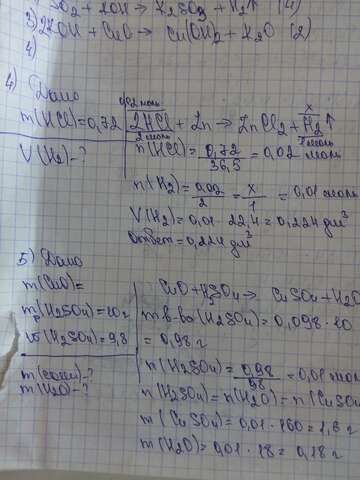 O₂ + 2OH → K₂SO₃ + H₂↑ (4)
3) 2KOH + CuO → Cu(OH)₂ + K₂O (2)
4)
4) Дано
m(HCl)=0,72
V(H₂)-?
0,02 моль x
2HCl + Zn → ZnCl₂ + H₂↑
2 моль 1 моль
n(HCl) = 0,72/36,5 = 0,02 моль
n(H₂) = 0,02/2 = x/1 = 0,01 моль
V(H₂)=0,01·22,4=0,224 дм³
Ответ = 0,224 дм³
5) Дано
m(CuO)=
mр(H₂SO₄)=10г
w(H₂SO₄)=9,8
m(соли)-?
m(H₂O)-?
CuO + H₂SO₄ → CuSO₄ + H₂O
m в-ва (H₂SO₄) = 0,098·10
= 0,98 г
n(H₂SO₄) = 0,98/98 = 0,01 моль
n(H₂SO₄) = n(H₂O) = n(CuSO₄
m(CuSO₄) = 0,01·160 = 1,6 г
m(H₂O) = 0,01·18 = 0,18 г